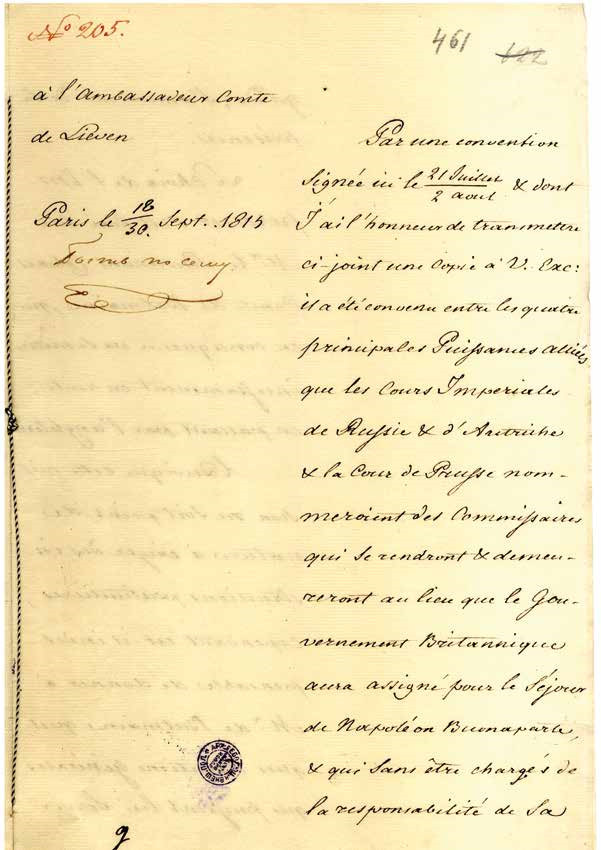 No 205.
461
122
à l'Ambassadeur Comte
de Liéven
Paris le 18/30. Sept. 1815
Быть по сему
Par une convention
signée ici le 21 Juillet/2 aout & dont
J'ai l'honneur de transmettre
ci-joint une Copie à V. Exc:
il a été convenu entre les quatre
principales Puissances alliées
que les Cours Imperiales
de Russie & d'Autriche
& la Cour de Prusse nom-
meroient des Commissaires
qui se rendront & demeu-
reront au lieu que le Gou-
vernement Britannique
aura assigné pour le Séjour
de Napoléon Buonaparte,
& qui sans être chargés de
la responsabilité de Sa
9